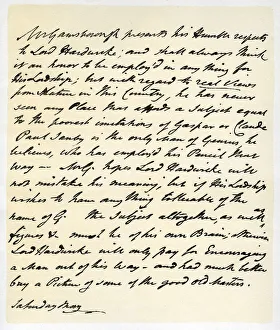 Mr Gainsborough presents his Humble respects
to Lord Hardwicke; and shall always think
it an honor to be employ'd in any thing for
His Lordship; but with regard to real Views
from Nature in this Country, he has never
seen any Place that affords a Subject equal
to the poorest imitations of Gaspar or Claude.
Paul Sanby is the only Man of Genius, he
believes, who has employ'd his Pencil that
Way — Mr G. hopes Lord Hardwicke will
not mistake his meaning, but if His Lordship
wishes to have any thing tollerable of the
name of G. the Subject altogether, as well as
figures &c must be of his own Brain; otherwise
Lord Hardwicke will only pay for Encouraging
a Man out of his Way — and had much better
buy a Picture of some of the good old Masters.
Saturday